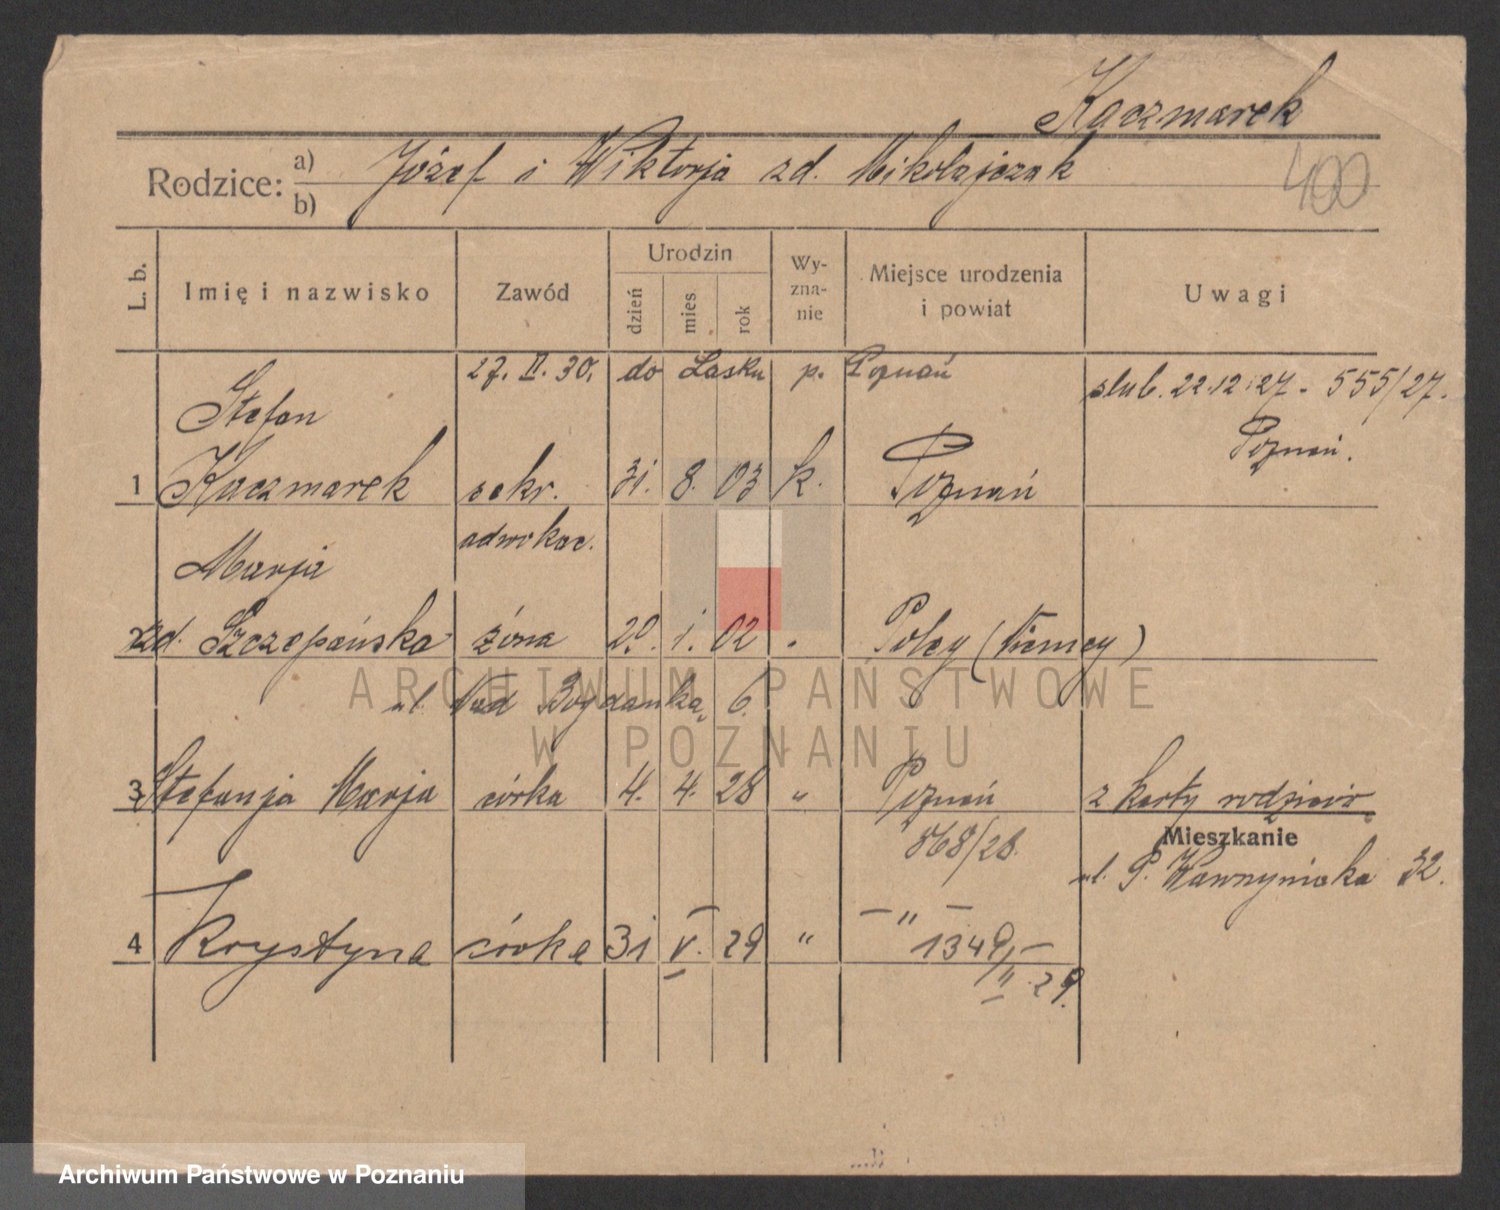 Kaczmarek
Rodzice: a) Józef i Wiktorja zd. Mikołajczak
b)
400
L. b.
Imię i nazwisko
Zawód
Urodzin
dzień
mies
rok
Wy-
zna-
nie
Miejsce urodzenia
i powiat
Uwagi
27. II. 30. do Lasku p. Poznań
ślub. 22.12.27 - 555/27.
Poznań.
Stefan
1 Kaczmarek sekr. 31. 8. 03 k. Poznań
adwokac.
Marja
2 zd. Szczepańska żona 20. 1. 02 " (Niemcy)
ul. Nad Bogdanką 6.
3 Stefanja Marja córka 4. 4. 28 " Poznań z karty rodziców
868/28.
Mieszkanie
ul. P. Wawrzyniaka 32.
4 Krystyna córka 31 V. 29 " — " —
1349/II.29.
ARCHIWUM PAŃSTWOWE
W POZNANIU
Archiwum Państwowe w Poznaniu